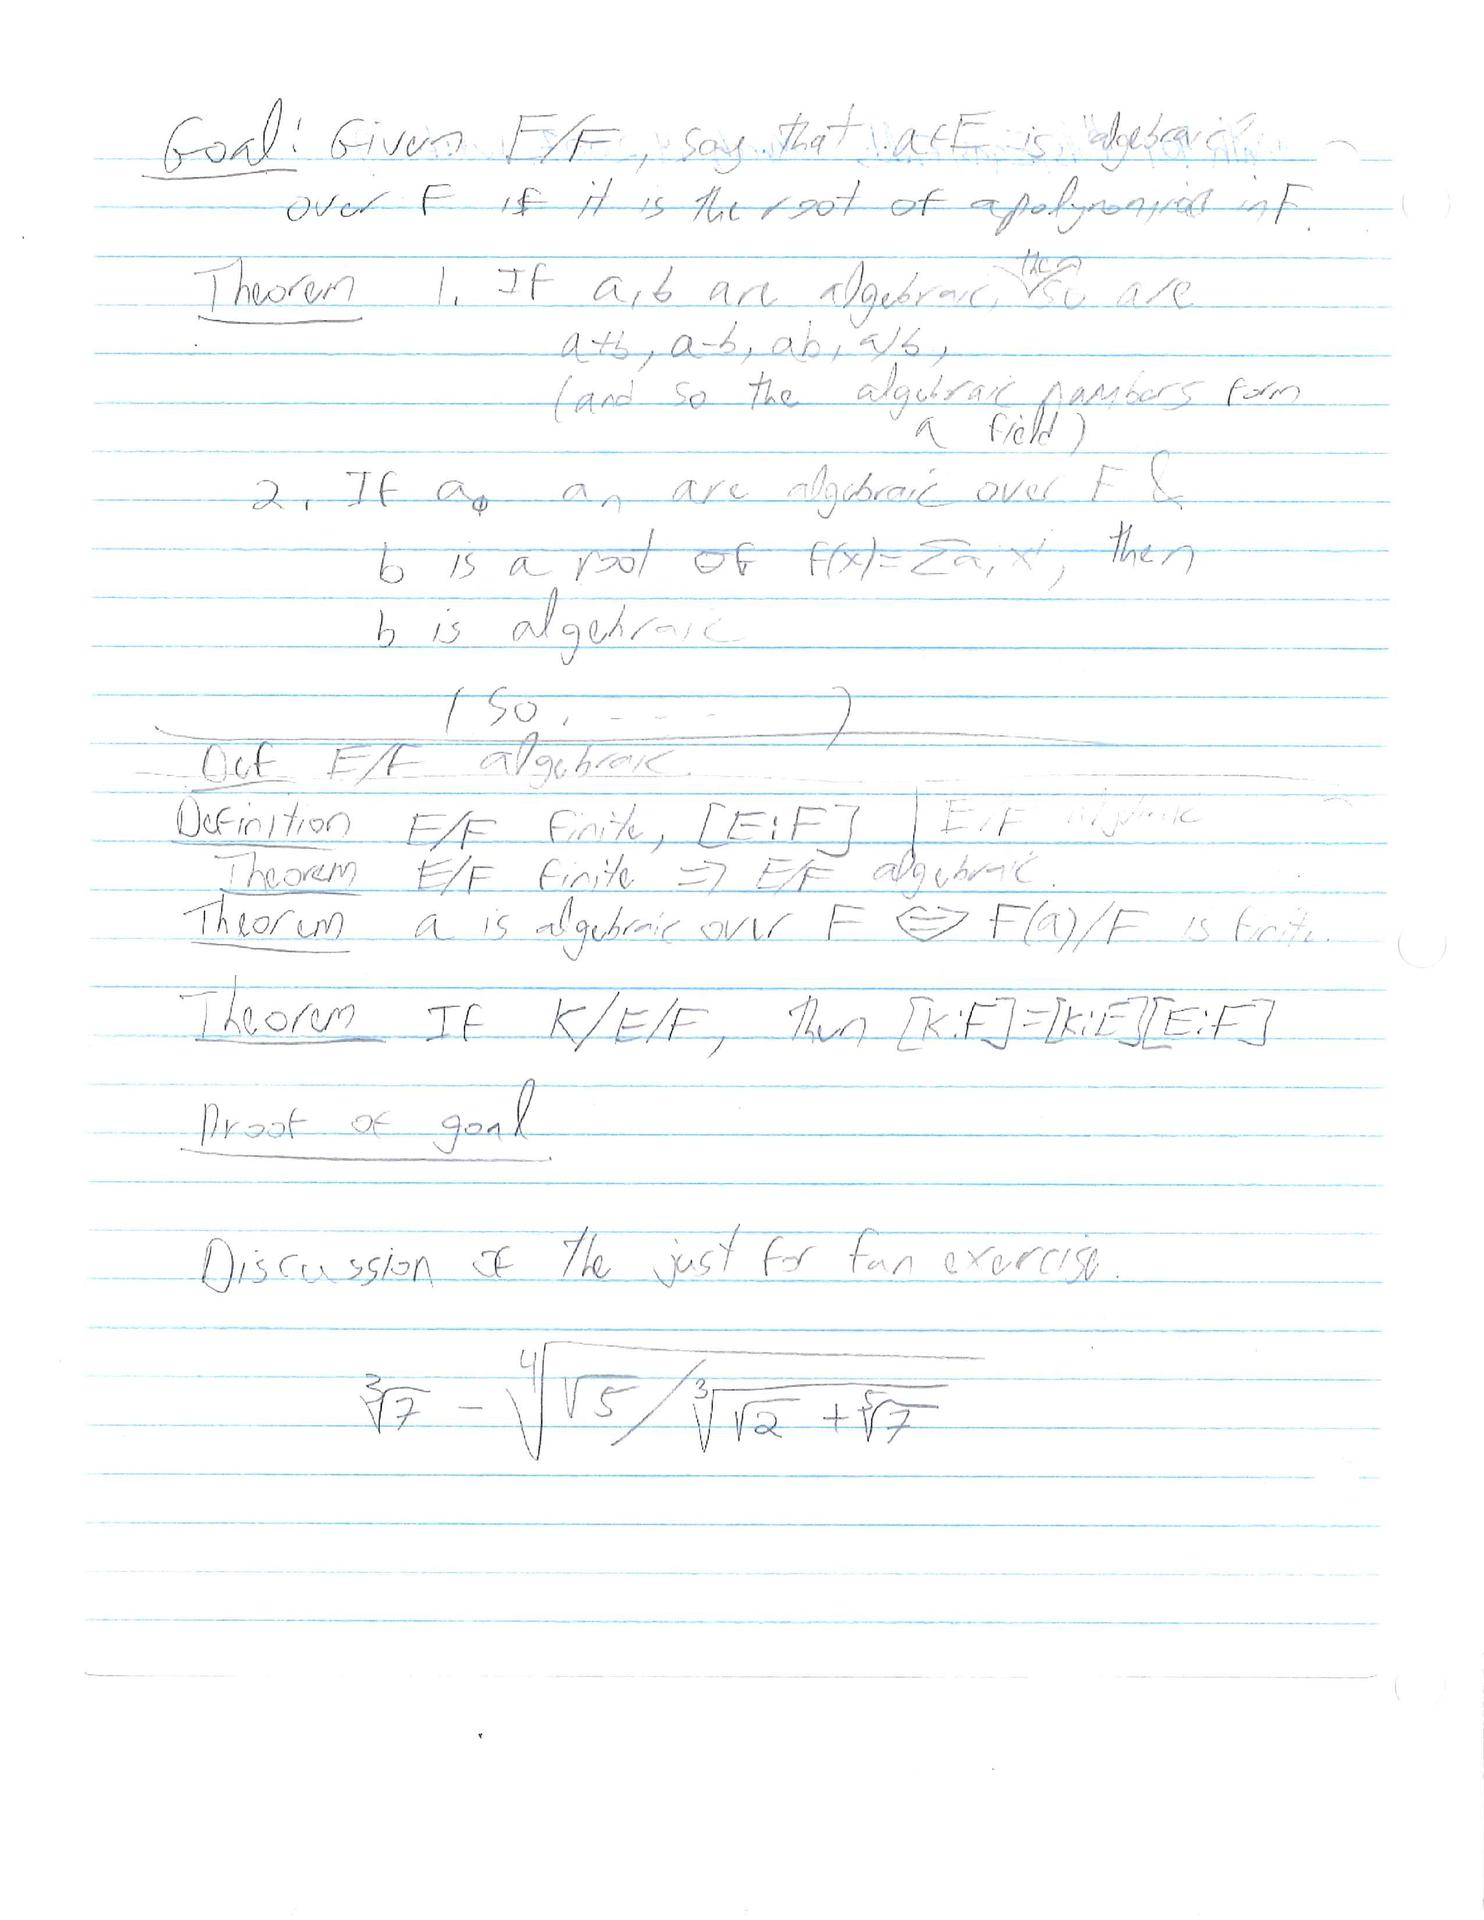 Goal: Given E/F, say that a∈E is "algebraic"
over F if it is the root of a polynomial in F.
Theorem 1. If a, b are algebraic, then so are
a+b, a-b, ab, a/b,
(and so the algebraic numbers form
a field)
2. If a₀ aₙ are algebraic over F &
b is a root of f(x)=Σaᵢxⁱ, then
b is algebraic
(So, - - - - )
Def E/F algebraic
Definition E/F finite, [E:F] | E/F algebraic
Theorem E/F finite ⇒ E/F algebraic.
Theorem a is algebraic over F ⇔ F(a)/F is finite.
Theorem If K/E/F, then [K:F]=[K:E][E:F]
Proof of goal
Discussion of the just for fun exercise.
∛7 - ∜(√5/∛(√2 + ⁵√7))